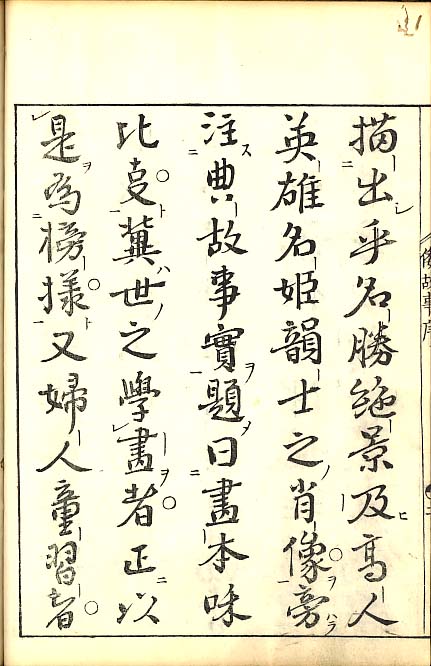 描出乎名勝絶景及高人
英雄名姫韻士之肖像旁
注典故事實題曰畫本味
比叓冀世之學畫者正以
是為榜樣又婦人童習者
故事序